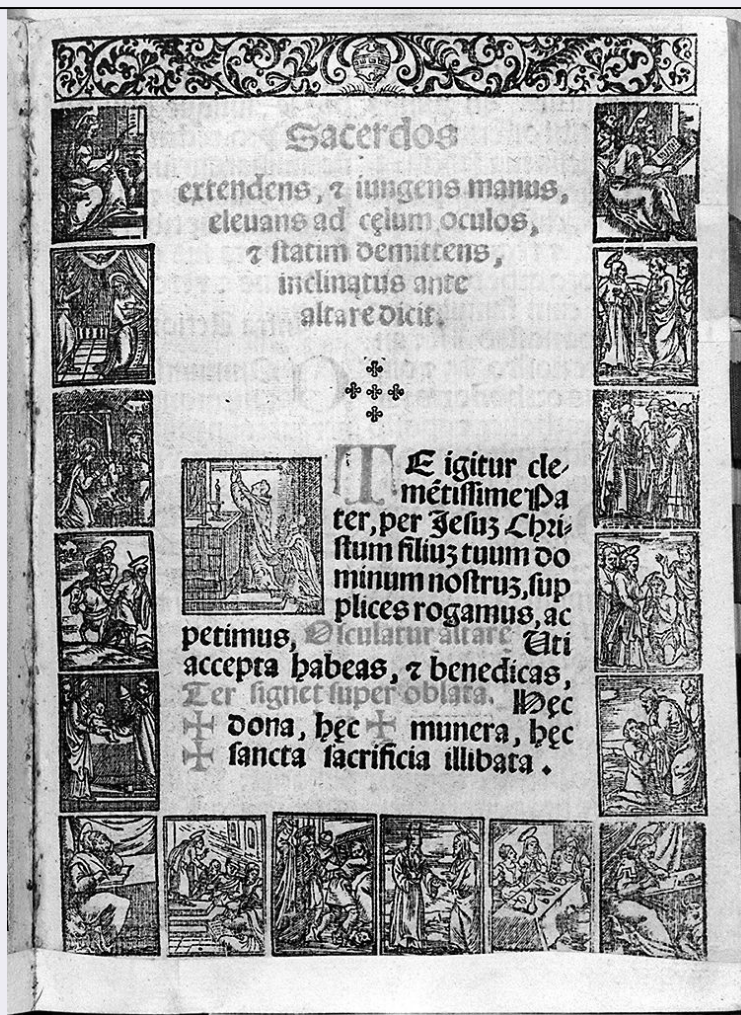 Sacerdos
extendens, ⁊ iungens manus,
eleuans ad cęlum oculos,
⁊ statim demittens,
inclinatus ante
altare dicit.
TE igitur cle-
mẽtissime Pa
ter, per Jesuꝫ Chri-
stum filiuꝫ tuum do
minum nostruꝫ, sup
plices rogamus, ac
petimus, Osculatur altare Uti
accepta habeas, ⁊ benedicas,
Ter signet super oblata. Hęc
✠ dona, hęc ✠ munera, hęc
✠ sancta sacrificia illibata.